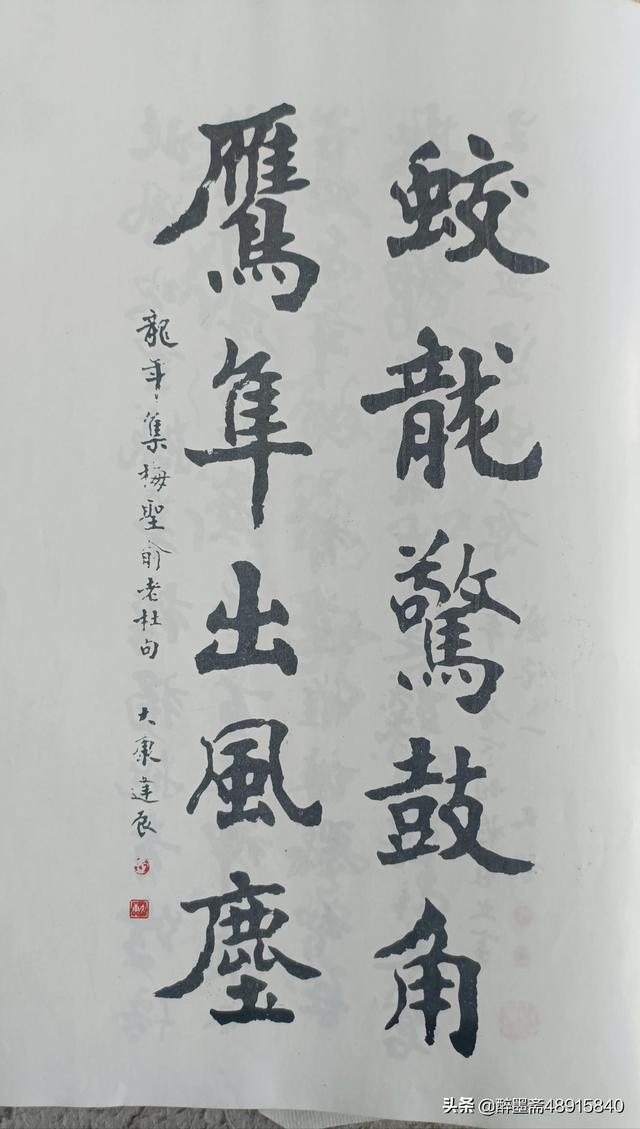 蛟龍驚鼓角
鷹隼出風塵
龍年集梅聖俞老杜句
大康達
头条 @醉墨斋48915840